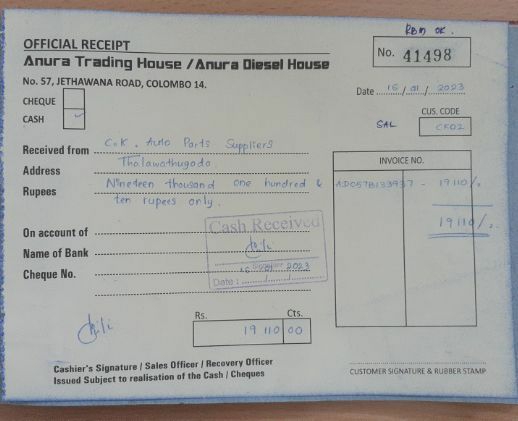 RBM OK.
OFFICIAL RECEIPT
Anura Trading House / Anura Diesel House
No. 41498
No. 57, JETHAWANA ROAD, COLOMBO 14.
Date 15 / 01 / 2023
CHEQUE
CASH ✓
CUS. CODE
SAL CF02
Received from C.K. Auto Parts Suppliers
Address Thalawathugoda
INVOICE NO.
Rupees Nineteen thousand one hundred &
ten rupees only.
AD057B133937 - 19110/.
19110/.
On account of
Cash Received
Name of Bank
Cheque No.
Signature
15 01 2023
Date :
Rs. Cts.
19 110 00
Cashier's Signature / Sales Officer / Recovery Officer
Issued Subject to realisation of the Cash / Cheques
CUSTOMER SIGNATURE & RUBBER STAMP